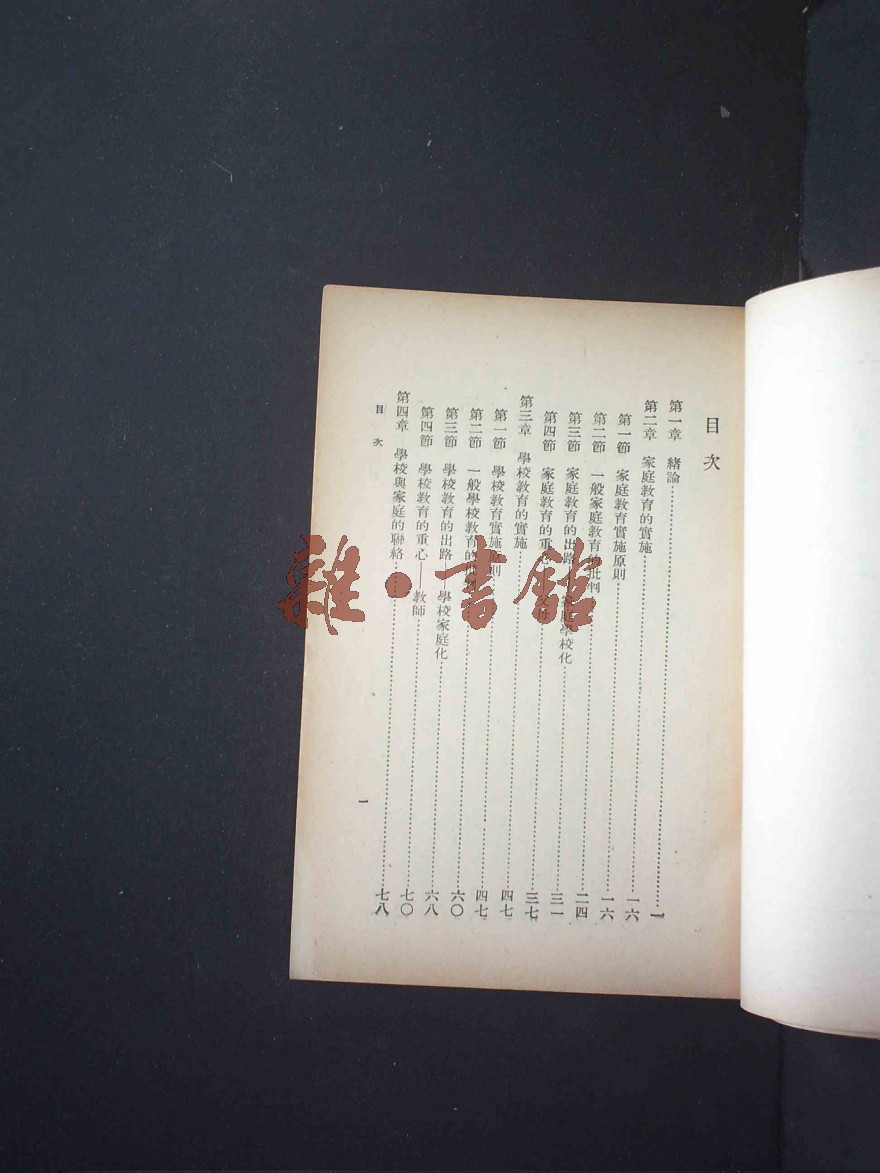 目次
第一章 緒論……一
第二章 家庭教育的實施……一六
第一節 家庭教育實施原則……一六
第二節 一般家庭教育的批判……二四
第三節 家庭教育的出路——家庭學校化……三一
第四節 家庭教育的重心……三七
第三章 學校教育的實施……四七
第一節 學校教育實施原則……四七
第二節 一般學校教育的……六〇
第三節 學校教育的出路——學校家庭化……六八
第四節 學校教育的重心——教師……七〇
第四章 學校與家庭的聯絡……七八
目次
一
雜·書館